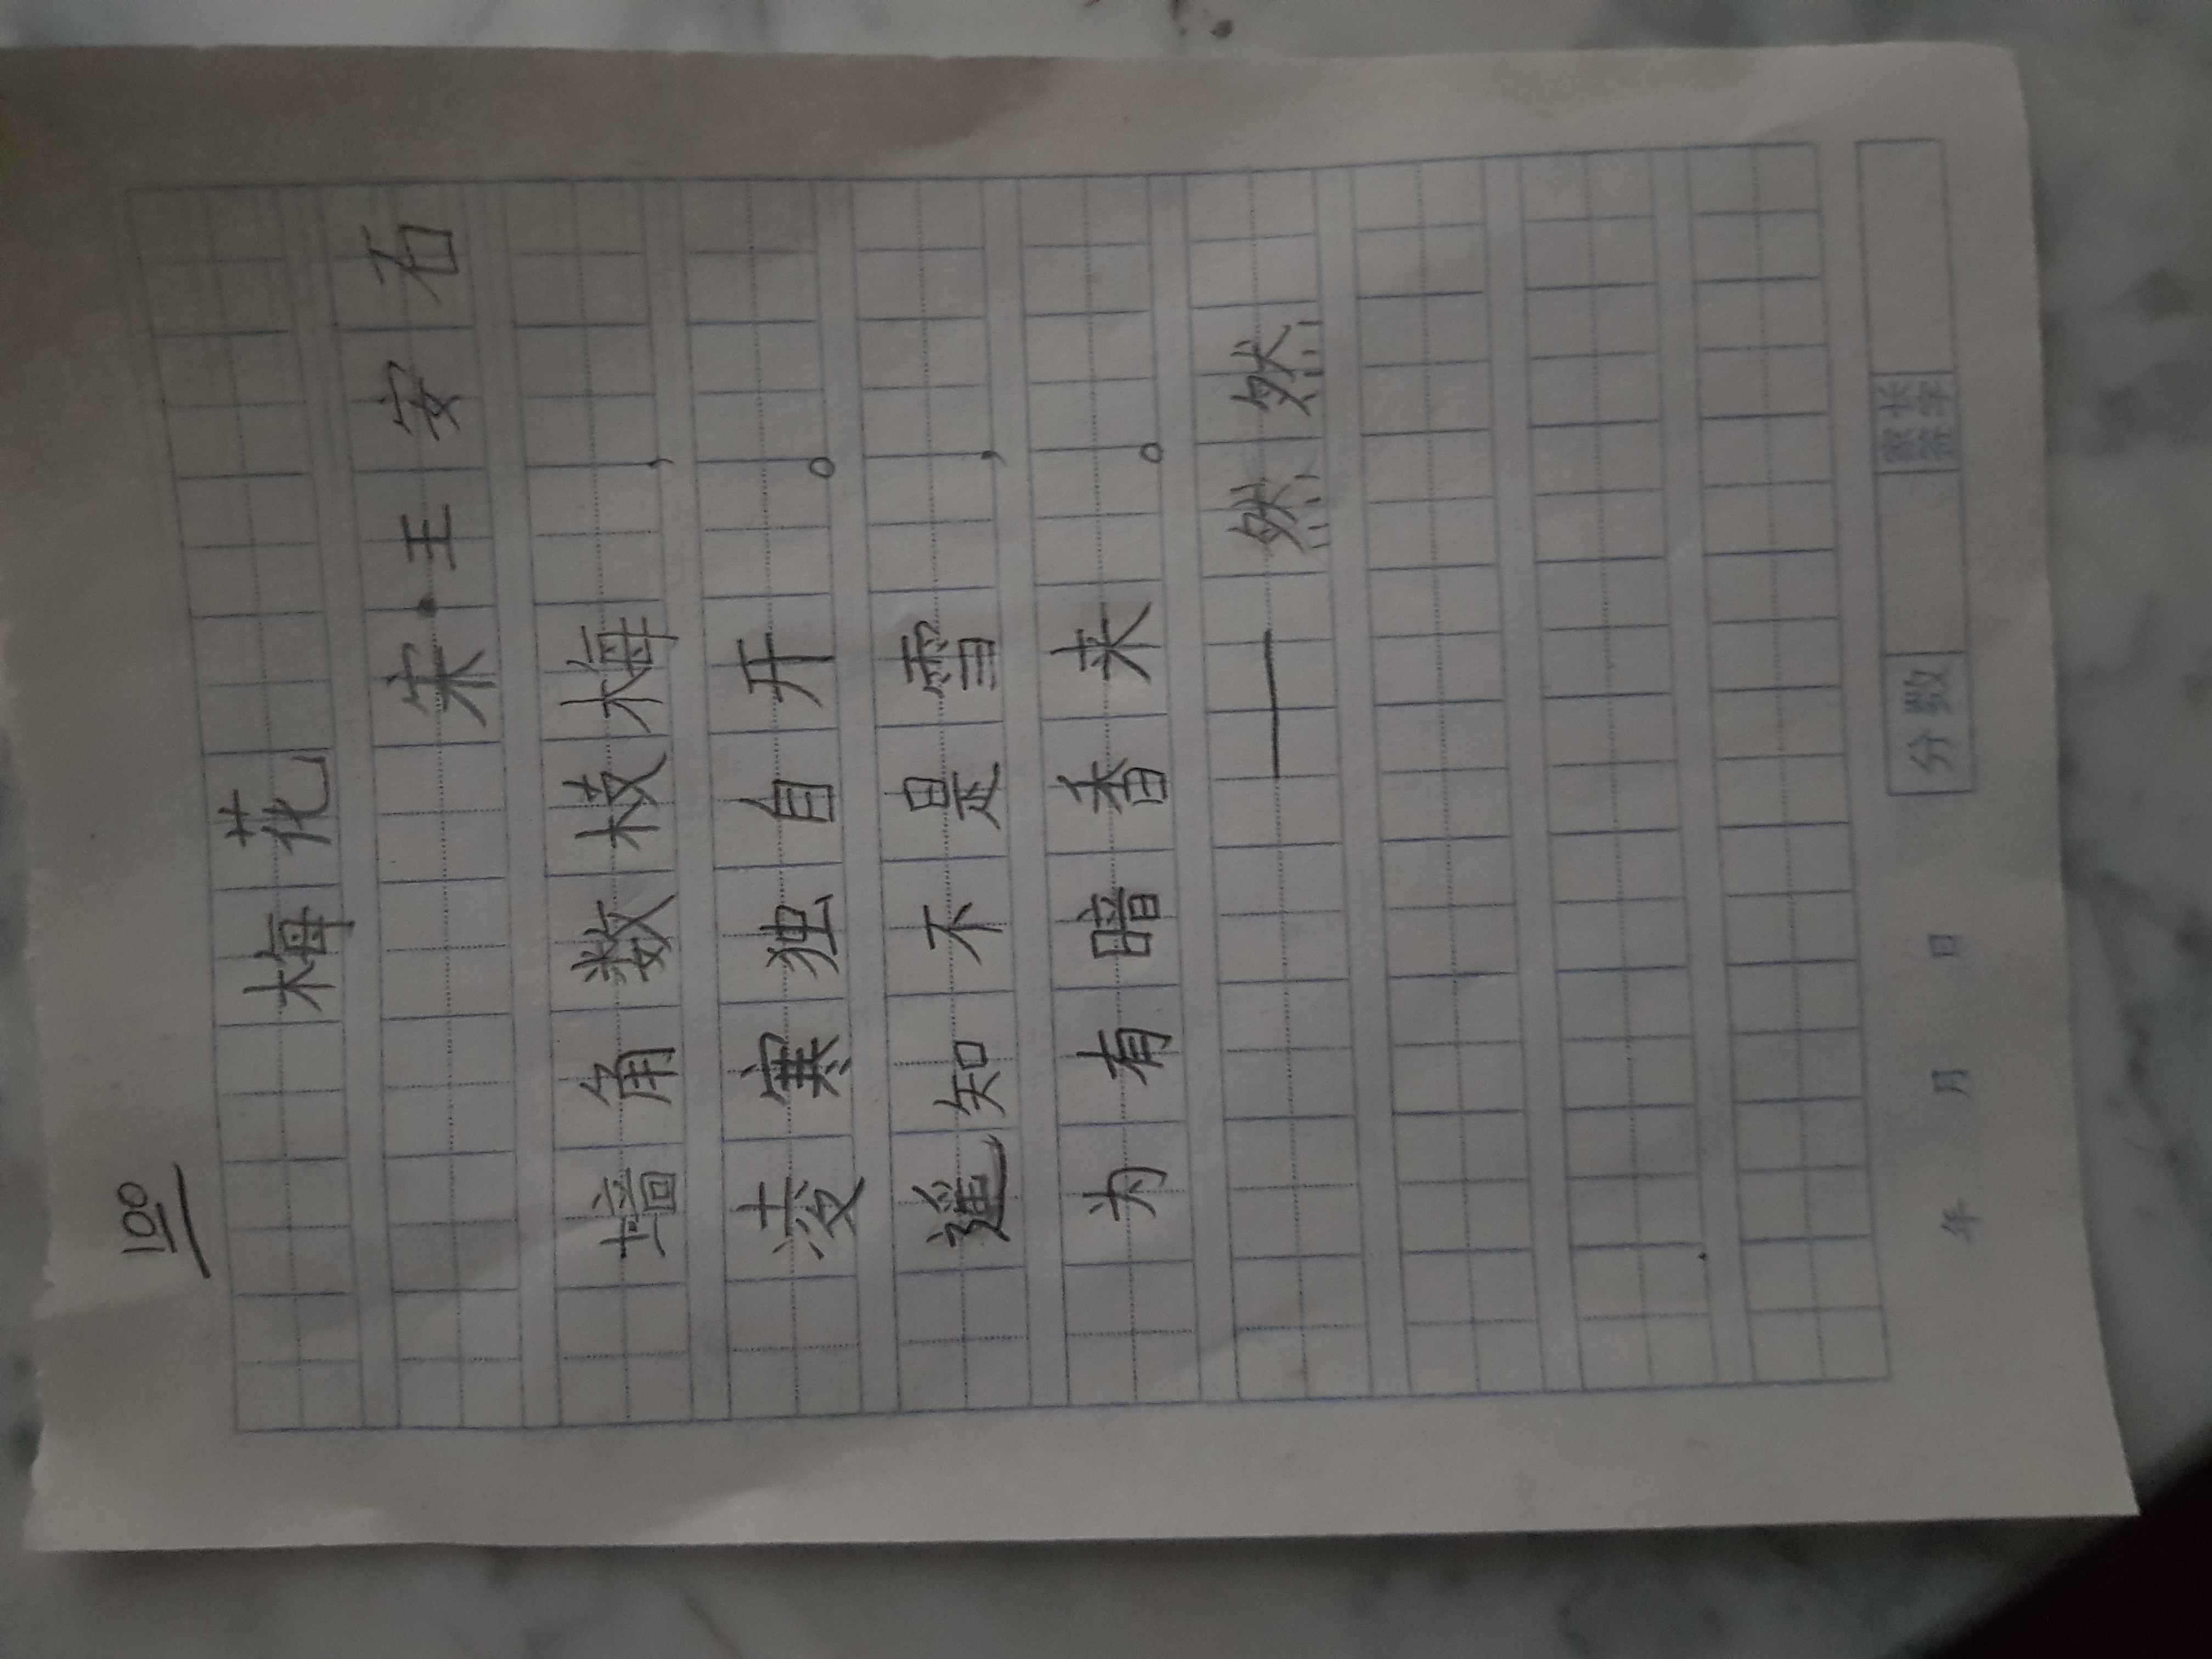 100
梅花
宋·王安石
墙角数枝梅，
凌寒独自开。
遥知不是雪，
为有暗香来。
——然然
年 月 日 分数 家长签字